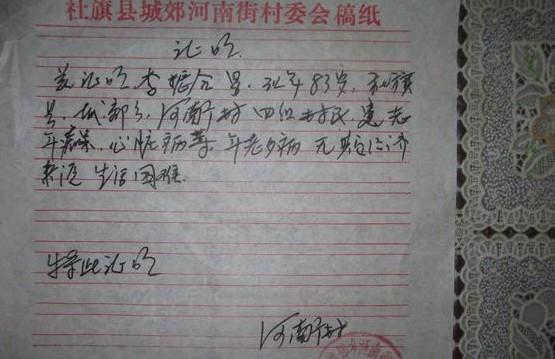 社旗县城郊河南街村委会稿纸
证明
兹证明李 合 男,现年83岁,
河南街村四组村民,患老
年病,心脏病等,年老多病无 经济
来源 生活困难.
特此证明
河南街村